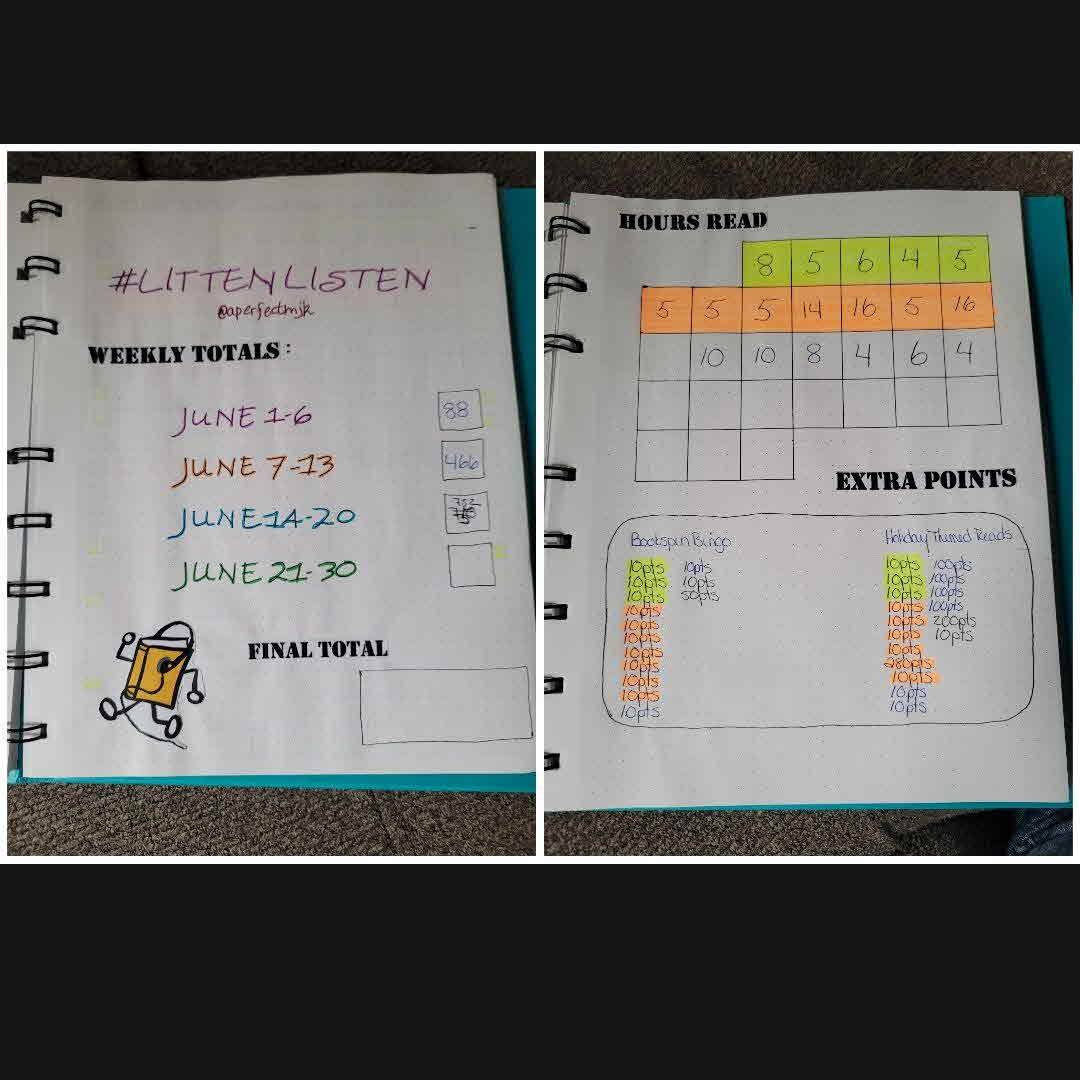 #LITTENLISTEN
@aperfectmjk
WEEKLY TOTALS:
JUNE 1-6 88
JUNE 7-13 466
JUNE 14-20 752
JUNE 21-30
FINAL TOTAL
HOURS READ
8 5 6 4 5
5 5 5 14 16 5 16
10 10 8 4 6 4
EXTRA POINTS
Bookspin Bingo
10pts 10pts
10pts 10pts
10pts 50pts
10pts
10pts
10pts
10pts
10pts
10pts
10pts
10pts
Holiday Themed Reads
10pts 100pts
10pts 100pts
10pts 100pts
10pts 100pts
10pts 200pts
10pts 10pts
10pts
280pts
10pts
10pts
10pts